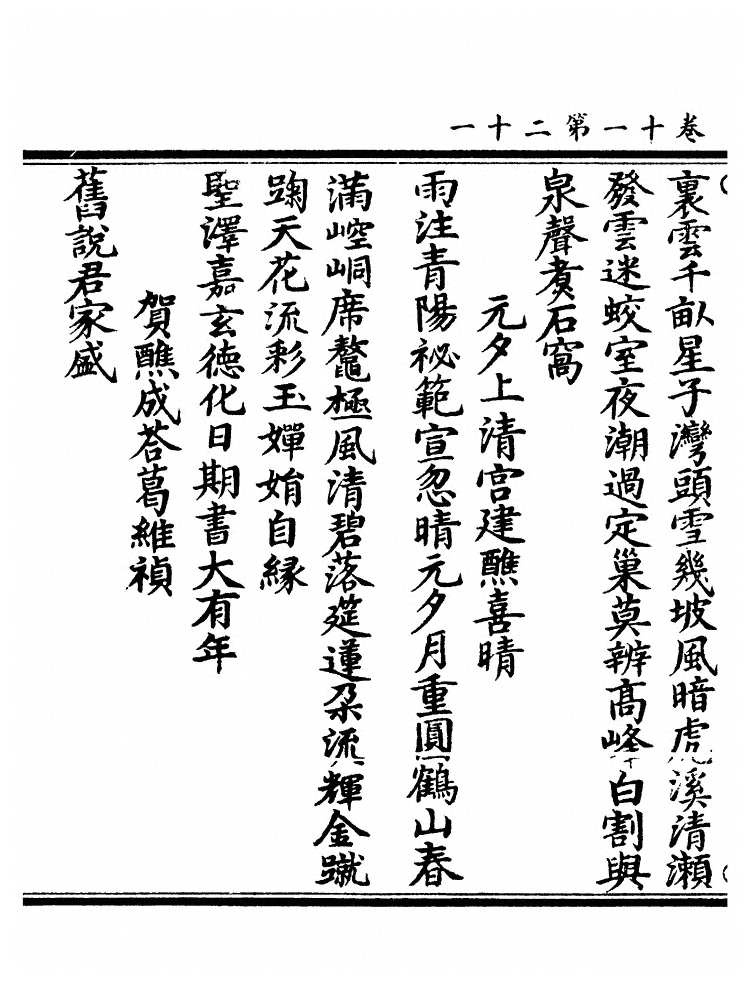 卷十一第二十一
裏雲千畝星子灣頭雪幾坡風暗虎溪清瀬
發雲迷蛟室夜潮過定巢莫辨髙峰白割與
泉聲煑石窩
元夕上清宮建醮喜晴
雨注青陽祕範宣忽晴元夕月重圓鶴山春
滿崆峒席鼇極風清碧落筵蓮朶流輝金蹴
踘天花流彩玉嬋娟自縁
聖澤嘉玄徳化日期書大有年
賀醮成荅葛維禎
舊說君家盛